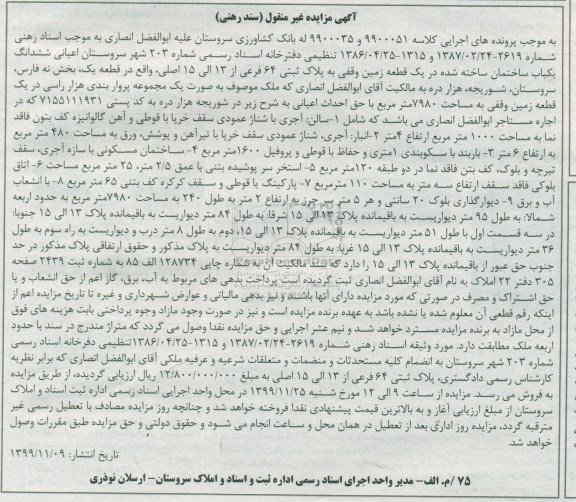 آگهی مزایده غیر منقول (سند رهنی)
به موجب پرونده های اجرایی کلاسه ۹۹۰۰۰۵۱ و ۹۹۰۰۰۳۵ له بانک کشاورزی سروستان علیه ابوالفضل انصاری به موجب اسناد رهنی
شماره ۲۶۱۹-۱۳۸۷/۰۲/۲۴ و ۱۳۱۵-۱۳۸۶/۰۴/۲۵ تنظیمی دفترخانه اسناد رسمی شماره ۲۰۳ شهر سروستان اعیانی ششدانگ
یکباب ساختمان ساخته شده در یک قطعه زمین وقفی به پلاک ثبتی ۶۴ فرعی از ۱۳ الی ۱۵ اصلی، واقع در قطعه یک، بخش نه فارس،
سروستان، شوریجه، هزار دره به مالکیت آقای ابوالفضل انصاری که ملک موصوف به صورت یک مجموعه پروار بندی هزار راسی در یک
قطعه زمین وقفی به مساحت ۷۹۸۰متر مربع با حق احداث اعیانی به شرح زیر در شوریجه هزار دره به کد پستی ۷۱۵۵۱۱۱۹۳۱ که در
اجاره مستاجر ابوالفضل انصاری می باشد که شامل ۱-سالن: آجری با شناژ عمودی سقف خرپا با قوطی و آهن گالوانیزه کف بتون فاقد
نما به مساحت ۱۰۰۰ متر مربع ارتفاع ۴متر ۲-انبار: آجری، شناژ عمودی سقف خرپا با تیرآهن و پوشش، ورق به مساحت ۴۸۰ متر مربع
به ارتفاع ۶ متر ۳- باربند با سکوبندی ۱متری و حفاظ با قوطی و پروفیل ۱۶۰۰متر مربع ۴- ساختمان مسکونی با سازه آجری، سقف
تیرچه و بلوک، کف بتن فاقد نما در دو طبقه ۱۲۰متر مربع ۵- استخر سر پوشیده بتنی با عمق ۲/۵ متر، ۲۵ متر مربع مساحت ۶- اتاق
بلوکی فاقد سقف ارتفاع سه متر به مساحت ۱۱۰ مترمربع ۷- پارکینگ با قوطی و سقف کرکره کف بتنی ۶۵ متر مربع ۸- با انشعاب
آب و برق ۹- دیوارگذاری بلوک ۲۰ سانتی و هر ۵ متر یک جرز به ارتفاع ۲ متر به طول ۲۴۰ به مساحت ۷۹۸۰متر مربع به حدود اربعه
شمالا: به طول ۹۵ متر دیواریست به باقیمانده پلاک ۱۳ الی ۱۵ شرقا: به طول ۸۴ متر دیواریست به باقیمانده پلاک ۱۳ الی ۱۵ جنوبا:
در سه قسمت اول با طول ۵۱ متر دیواریست به باقیمانده پلاک ۱۳ الی ۱۵، دوم به طول ۸ متر درب و دیواریست به راه سوم به طول
۳۶ متر دیواریست به باقیمانده پلاک ۱۳ الی ۱۵ غربا: به طول ۸۴ متر دیواریست به پلاک مذکور و حقوق ارتفاقی پلاک مذکور در حد
جنوب حق عبور از باقیمانده پلاک ۱۳ الی ۱۵ را دارد که سند مالکیت آن به شماره چاپی ۱۲۸۷۳۴ الف ۸۵ به شماره ثبت ۲۴۳۹ صفحه
۳۰۵ دفتر ۲۲ املاک به نام آقای ابوالفضل انصاری ثبت گردیده است پرداخت بدهی های مربوط به آب، برق، گاز اعم از حق انشعاب و یا
حق اشتراک و مصرف در صورتی که مورد مزایده دارای آنها باشند و نیز بدهی مالیاتی و عوارض شهرداری و غیره تا تاریخ مزایده اعم از
اینکه رقم قطعی آن معلوم شده یا نشده باشد به عهده برنده مزایده است و نیز در صورت وجود مازاد وجوه پرداختی بابت هزینه های فوق
از محل مازاد به برنده مزایده مسترد خواهد شد و نیم عشر اجرایی و حق مزایده نقدا وصول می گردد که متراژ مندرج در سند با حدود
اربعه ملک مطابقت دارد. مورد وثیقه اسناد رهنی شماره ۲۶۱۹-۱۳۸۷/۰۲/۲۴ و ۱۳۱۵-۱۳۸۶/۰۴/۲۵تنظیمی دفترخانه اسناد رسمی
شماره ۲۰۳ شهر سروستان به انضمام کلیه مستحدثات و منضمات و متعلقات شرعیه و عرفیه ملکی آقای ابوالفضل انصاری که برابر نظریه
کارشناس رسمی دادگستری، پلاک ثبتی ۶۴ فرعی از ۱۳ الی ۱۵ اصلی به مبلغ ۱۲/۸۰۰/۰۰۰/۰۰۰ ریال ارزیابی گردیده، از طریق مزایده
به فروش می رسد. مزایده از ساعت ۹ الی ۱۲ مورخ شنبه ۱۳۹۹/۱۱/۲۵ در محل واحد اجرایی اسناد رسمی اداره ثبت اسناد و املاک
سروستان از مبلغ ارزیابی آغاز و به بالاترین قیمت پیشنهادی نقدا فروخته خواهد شد و چنانچه روز مزایده مصادف با تعطیل رسمی غیر
مترقبه گردد، مزایده روز اداری بعد از تعطیل در همان محل و ساعت انجام می شود و حقوق دولتی و حق مزایده طبق مقررات وصول
خواهد شد.
تاریخ انتشار: ۱۳۹۹/۱۱/۰۹
۷۵ /م. الف- مدیر واحد اجرای اسناد رسمی اداره ثبت و اسناد و املاک سروستان- ارسلان نوذری